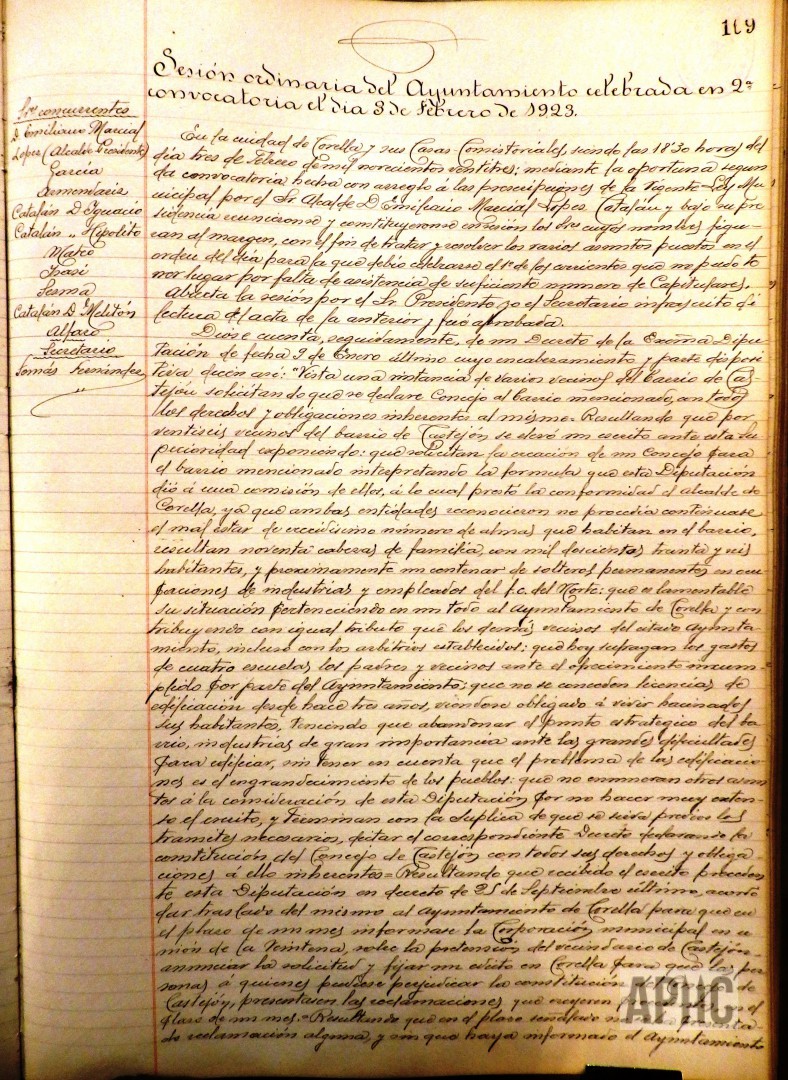 169
Sesión ordinaria del Ayuntamiento celebrada en 2ª
convocatoria el dia 3 de Febrero de 1923.
Sres concurrentes
D Emiliano Marcial
Lopez (Alcalde Presidente)
Garcia
Armendariz
Catalán D Ignacio
Catalán " Hipolito
Mateo
Sesma
Catalán D Melitón
Alfaro
Secretario
Tomás Fernández
En la ciudad de Corella y sus Casas-Consistoriales, siendo las 18'30 horas del
dia tres de Febrero de mil novecientos ventitres; mediante la oportuna segun
da convocatoria hecha con arreglo á las prescripciones de la Vigente Ley Mu
nicipal por el Sr Alcalde D Emiliano Marcial Lopez Catalán y bajo su pre
sidencia reunieronse y constituyeronse en sesión los Sres cuyos nombres figu-
ran al margen, con el fin de tratar y resolver los varios asuntos puestos en el
orden del dia para la que debió celebrarse el 1º de los corrientes que no pudo te
ner lugar por falta de asistencia de suficiente número de Capitulares.
Abierta la sesión por el Sr Presidente yo el Secretario infrascrito di
lectura del acta de la anterior y fué aprobada.
Dióse cuenta, seguidamente, de un Decreto de la Excma Dipu-
tación de fecha 9 de Enero último cuyo encabezamiento y parte disposi
tiva dicen así: "Vista una instancia de varios vecinos del barrio de Cas-
tejón solicitando que se declare Concejo al barrio mencionado, con todos
los derechos y obligaciones inherentes al mismo= Resultando que por
ventiseis vecinos del barrio de Castejón se elevó un escrito ante esta Su
perioridad exponiendo: que solicitan la creación de un Concejo para
el barrio mencionado interpretando la formula que esta Diputación
dió á una comisión de ellos, á lo cual prestó la conformidad el alcalde de
Corella, ya que ambas entidades reconocieron no procedia continuase
el mal estar de crecidisimo número de almas que habitan en el barrio,
resultan noventa cabezas de familia, con mil doscientos trenta y seis
habitantes, y proximamente un centenar de solteros permanentes en ocu
paciones de industrias y empleados del f.c. del Norte: que es lamentable
su situación perteneciendo en un todo al Ayuntamiento de Corella y con
tribuyendo con igual tributo que los demás vecinos del citado Ayunta-
miento, incluso con los arbitrios establecidos: que hoy sufragan los gastos
de cuatro escuelas los padres y vecinos ante el ofrecimiento incum
plido por parte del Ayuntamiento: que no se conceden licencias de
edificación desde hace tres años, viendose obligado á vivir hacinados
sus habitantes, teniendo que abandonar el punto estrategico del ba
rrio, industrias de gran importancia ante las grandes dificultades
para edificar, sin tener en cuenta que el problema de las edificacio-
nes es el engrandecimiento de los pueblos: que no enumeran otros asun
tos á la consideración de esta Diputación por no hacer muy exten-
so el escrito, y terminan con la suplica de que se sirva previos los
tramites necesarios, dictar el correspondiente Decreto declarando la
constitución del Concejo de Castejón con todos sus derechos y obliga-
ciones á ello inherentes= Resultando que recibido el escrito preceden
te esta Diputación en decreto de 25 de Septiembre último, acordó
dar traslado del mismo al Ayuntamiento de Corella para que en
el plazo de un mes informase la Corporación municipal en u
nión de la Veintena, sobre la pretensión del vecindario de Castejón-
anunciar la solicitud y fijar un edicto en Corella para que las per
sonas á quienes pudiese perjudicar la constitución del Concejo de
Castejón, presentasen las reclamaciones que creyeren en el
plazo de un mes.= Resultando que en el plazo señalado no presenta
do reclamación alguna, y sin que haya informado el Ayuntamiento
APHC